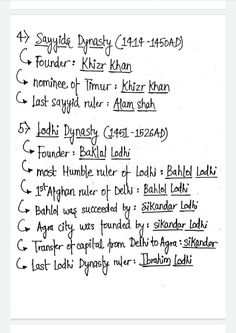 4> Sayyids Dynasty (1414-1450AD)
Founder : Khizr Khan
nominee of Timur : Khizr Khan
Last sayyid ruler : Alam shah
5> Lodhi Dynasty (1451-1526AD)
Founder : Baklal Lodhi
most Humble ruler of Lodhi : Bahlol Lodhi
1st Afghan ruler of Delhi : Bahlol Lodhi
Bahlol was succeeded by : Sikandar Lodhi
Agra city was founded by : sikandar Lodhi
Transfer of capital from Delhi to Agra : sikandar
Last Lodhi Dynasty ruler : Ibrahim Lodhi